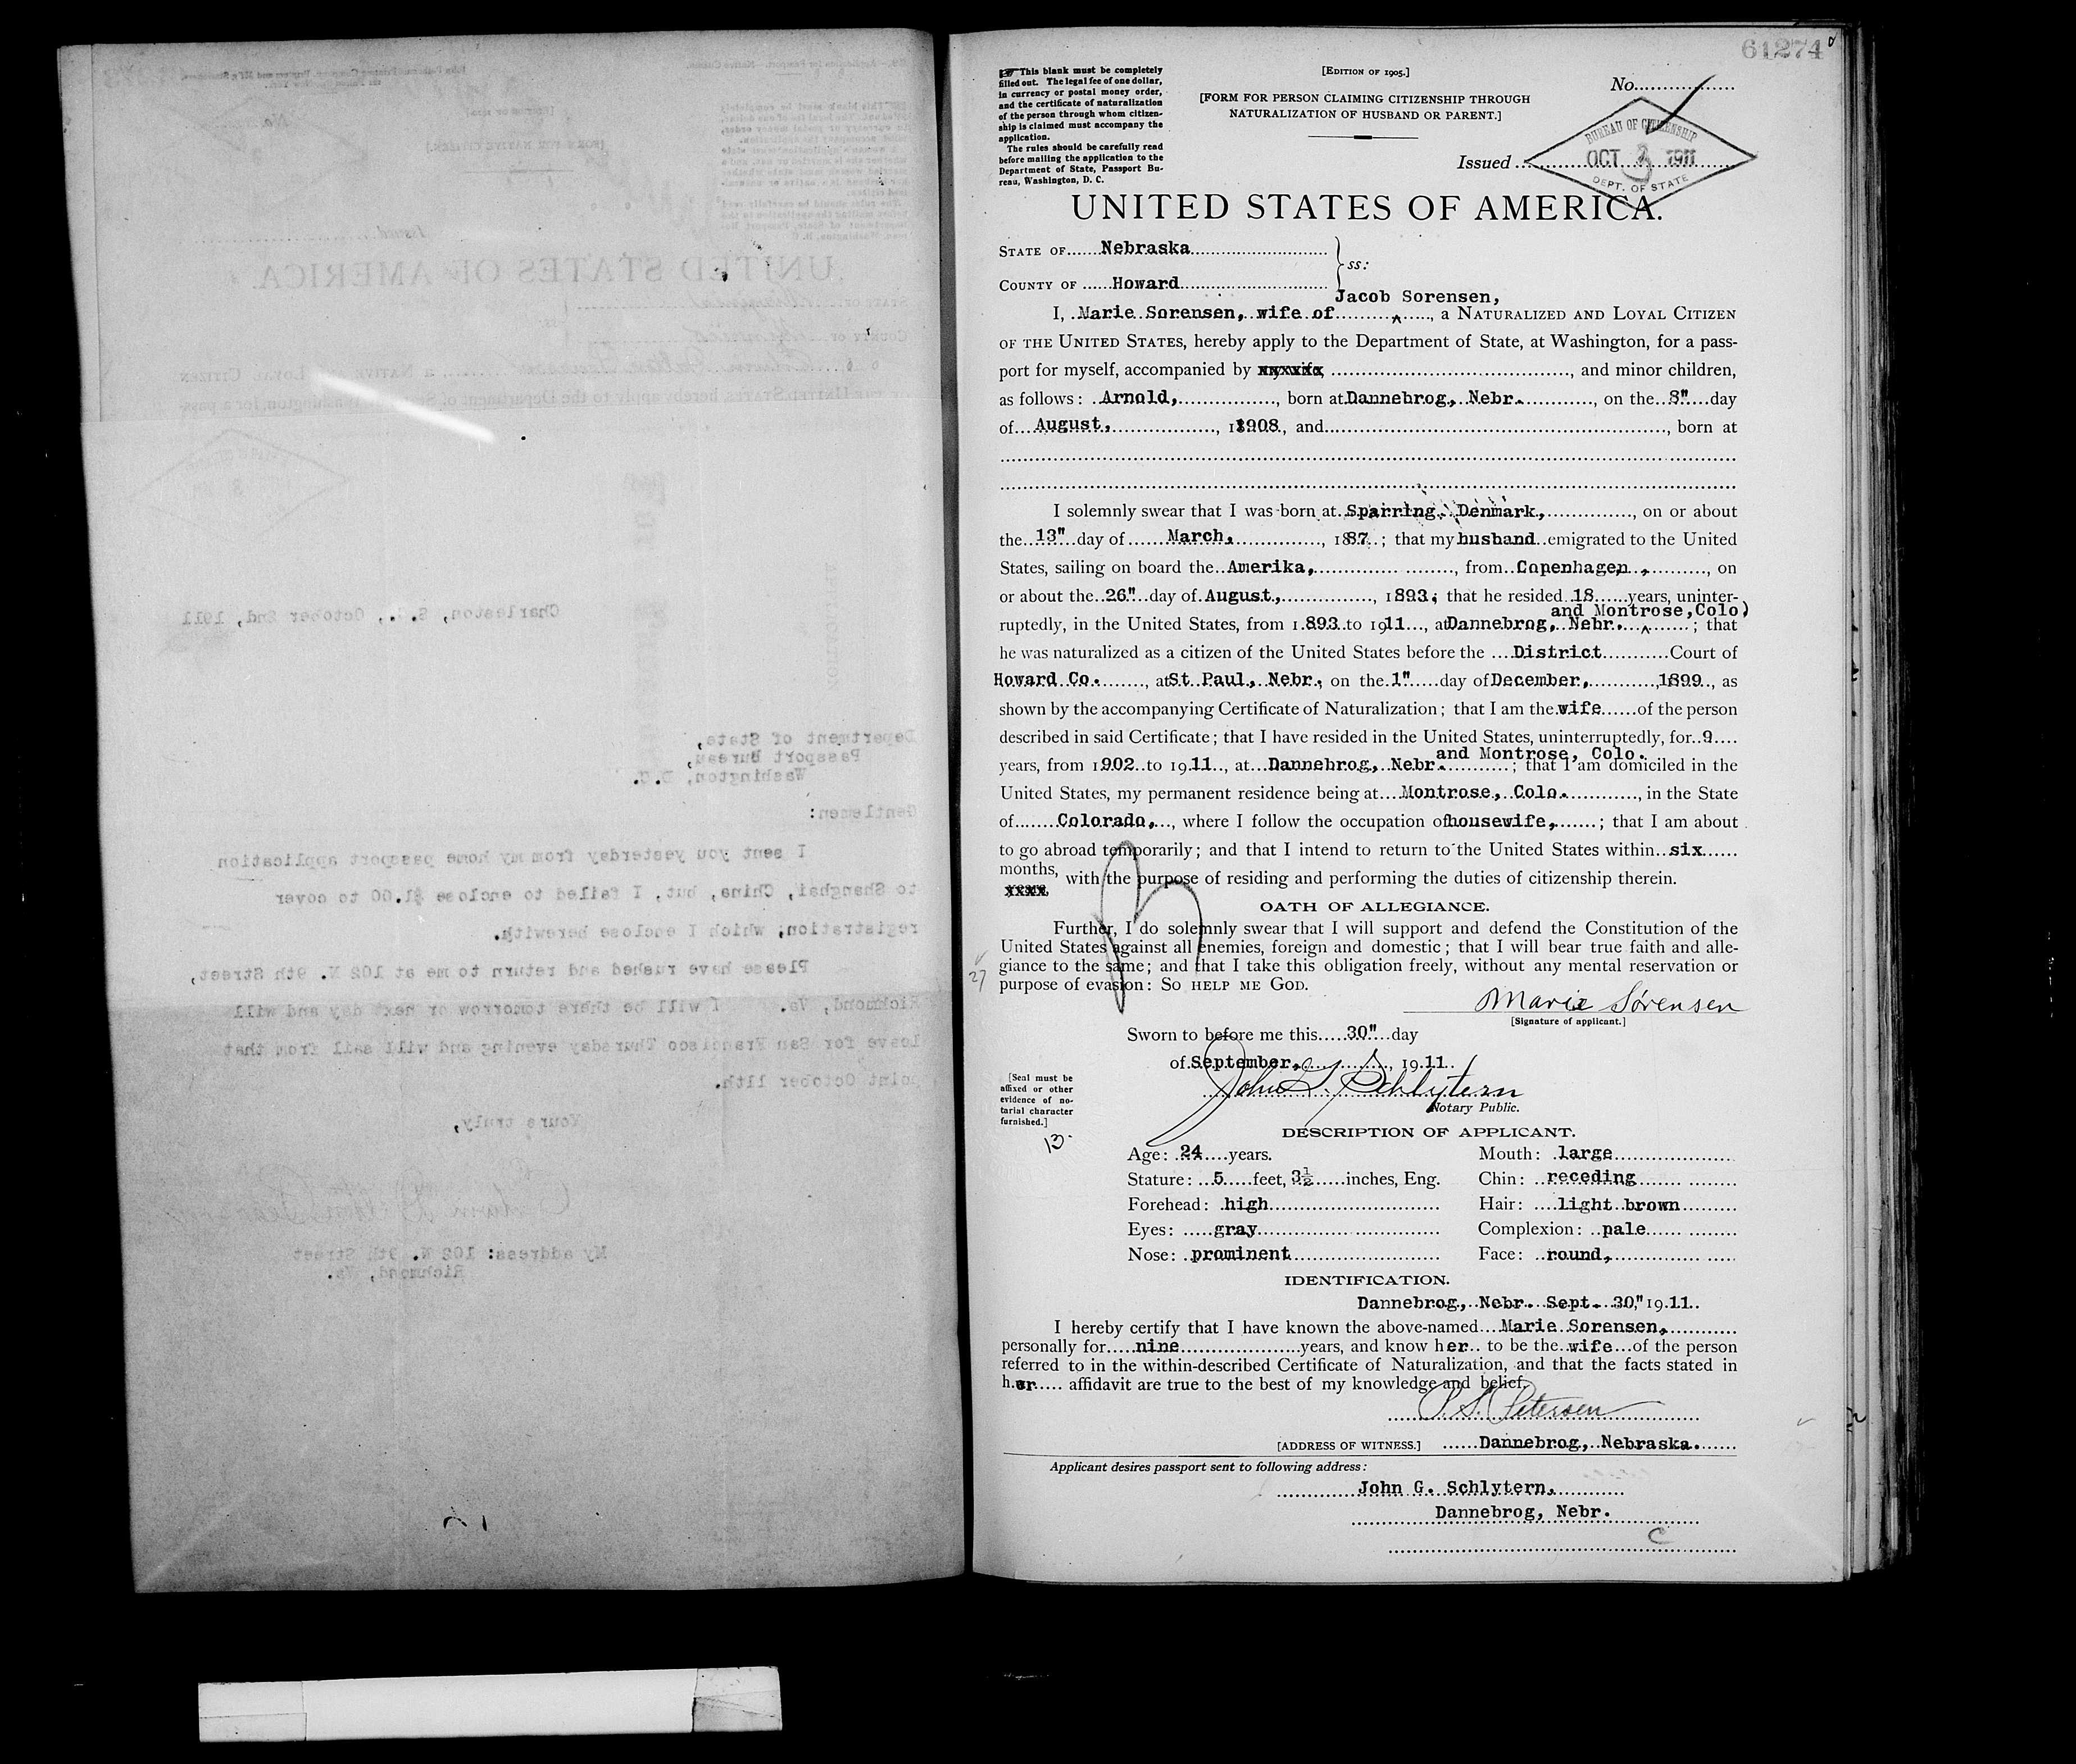 Charleston, S.C., October 2nd, 1911
Department of State,
Passport Bureau,
Washington, D.C.
Gentlemen:
I sent you yesterday from my home passport application
to Shanghai, China, but, I failed to enclose $1.00 to cover
registration; which I enclose herewith.
Please have rushed and return to me at 102 N. 9th Street,
Richmond, Va. I will be there tomorrow or next day and will
leave for San Francisco Thursday evening and will sail from that
point October 11th.
Yours truly,
My address: 102 N. 9th Street
Richmond, Va.
61274
This blank must be completely
filled out. The legal fee of one dollar,
in currency or postal money order,
and the certificate of naturalization
of the person through whom citizen-
ship is claimed must accompany the
application.
The rules should be carefully read
before mailing the application to the
Department of State, Passport Bu-
reau, Washington, D. C.
[EDITION OF 1905.]
[FORM FOR PERSON CLAIMING CITIZENSHIP THROUGH
NATURALIZATION OF HUSBAND OR PARENT.]
No.
Issued
BUREAU OF CITIZENSHIP
OCT 3 1911
DEPT. OF STATE
UNITED STATES OF AMERICA.
STATE OF Nebraska
COUNTY OF Howard
ss:
Jacob Sorensen,
I, Marie Sorensen, wife of ^, a NATURALIZED AND LOYAL CITIZEN
OF THE UNITED STATES, hereby apply to the Department of State, at Washington, for a pass-
port for myself, accompanied by , and minor children,
as follows: Arnold, , born at Dannebrog, Nebr. , on the 8" day
of August, , 1908, and , born at
I solemnly swear that I was born at Sparring, Denmark, , on or about
the 13" day of March, , 1887; that my husband emigrated to the United
States, sailing on board the Amerika, , from Copenhagen , on
or about the 26" day of August, , 1893; that he resided 18 years, uninter-
and Montrose, Colo)
ruptedly, in the United States, from 1893 to 1911, at Dannebrog, Nebr. ^ ; that
he was naturalized as a citizen of the United States before the District Court of
Howard Co. , at St Paul, Nebr, on the 1" day of December, , 1899, as
shown by the accompanying Certificate of Naturalization; that I am the wife of the person
described in said Certificate; that I have resided in the United States, uninterruptedly, for 9
and Montrose, Colo.
years, from 1902 to 1911, at Dannebrog, Nebr. ; that I am domiciled in the
United States, my permanent residence being at Montrose, Colo. , in the State
of Colorado, , where I follow the occupation of housewife, ; that I am about
to go abroad temporarily; and that I intend to return to the United States within six
months,
with the purpose of residing and performing the duties of citizenship therein.
OATH OF ALLEGIANCE.
Further, I do solemnly swear that I will support and defend the Constitution of the
United States against all enemies, foreign and domestic; that I will bear true faith and alle-
giance to the same; and that I take this obligation freely, without any mental reservation or
purpose of evasion: SO HELP ME GOD.
27
Marie Sørensen
[Signature of applicant.]
Sworn to before me this 30" day
of September, , 1911
John G. Schlytern
Notary Public.
[Seal must be
affixed or other
evidence of no-
tarial character
furnished.]
13.
DESCRIPTION OF APPLICANT.
Age: 24 years. Mouth: large
Stature: 5 feet, 3½ inches, Eng. Chin: receding
Forehead: high Hair: light brown
Eyes: gray Complexion: pale
Nose: prominent Face: round,
IDENTIFICATION.
Dannebrog, Nebr. Sept. 30," 1911
I hereby certify that I have known the above-named Marie Sorensen,
personally for nine years, and know her to be the wife of the person
referred to in the within-described Certificate of Naturalization, and that the facts stated in
her affidavit are true to the best of my knowledge and belief.
P. S. Petersen
[ADDRESS OF WITNESS.] Dannebrog, Nebraska.
Applicant desires passport sent to following address:
John G. Schlytern,
Dannebrog, Nebr.
C